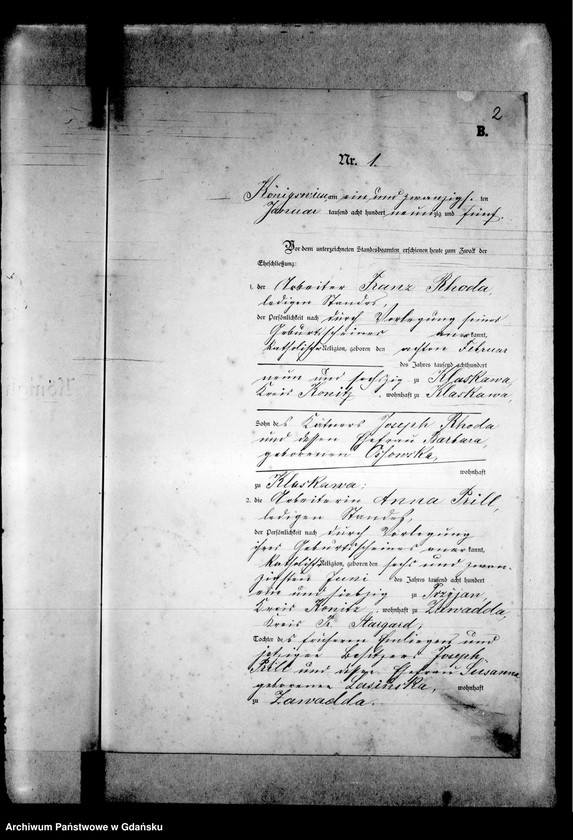 2
B.
Nr. 1.
Königswiese am ein und zwanzigsten
Januar tausend acht hundert neunzig und fünf.
Vor dem unterzeichneten Standesbeamten erschienen heute zum Zweck der
Eheschließung:
1. der Arbeiter Franz Rhoda,
ledigen Standes,
der Persönlichkeit nach durch Vorlegung seines
Geburtsscheines anerkannt,
katholischer Religion, geboren den achten Februar
des Jahres tausend achthundert
neun und sechszig zu Klaskawa,
Kreis Konitz, wohnhaft zu Klaskawa,
Sohn des Kätners Joseph Rhoda
und dessen Ehefrau Barbara
geborenen Ossowska,
wohnhaft
zu Klaskawa;
2. die Arbeiterin Anna Prill,
ledigen Standes,
der Persönlichkeit nach durch Vorlegung
ihres Geburtsscheines anerkannt,
katholischer Religion, geboren den sechs und zwan-
zigsten Juni des Jahres tausend acht hundert
ein und siebzig zu
Kreis Konitz, wohnhaft zu Zawadda,
Kreis Pr. Stargard,
Tochter des früheren Einliegers und
jetzigen Besitzers Joseph
Prill und Ehefrau Susanna
geborenen Lasinska,
wohnhaft
zu Zawadda.
Archiwum Państwowe w Gdańsku